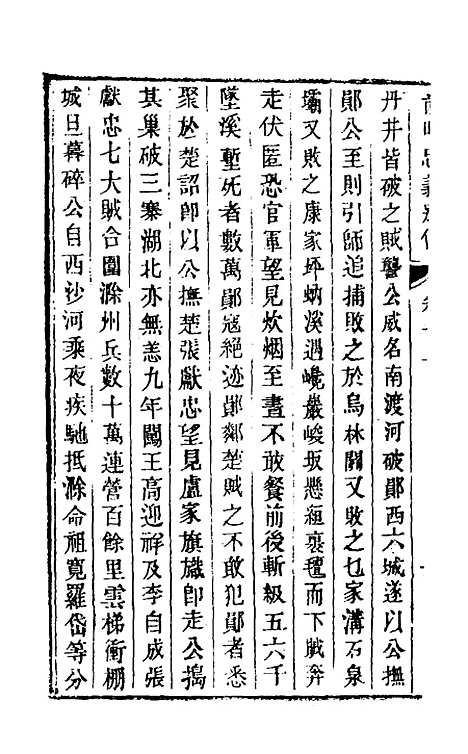 丹井皆破之賊讋公威名南渡河破鄖西六城遂以公撫
鄖公至則引師追捕敗之於烏林關又敗之乜家溝石泉
壩又敗之康家坪蚋溪遇巉巖峻坂懸縆裹氊而下賊弃
走伏匿恐官軍望見炊烟至晝不敢餐前後斬級五六千
墜溪塹死者數萬鄖寇絕迹鄖鄰楚賊之不敢犯鄖者悉
聚於楚詔卽以公撫楚張獻忠望見盧家旗幟卽走公搗
其巢破三寨湖北亦無恙九年闖王高迎祥及李自成張
獻忠七大賊合圍滁州兵數十萬連營百餘里雲梯衝棚
城旦暮碎公自西沙河乘夜疾馳抵滁命祖寬羅岱等分